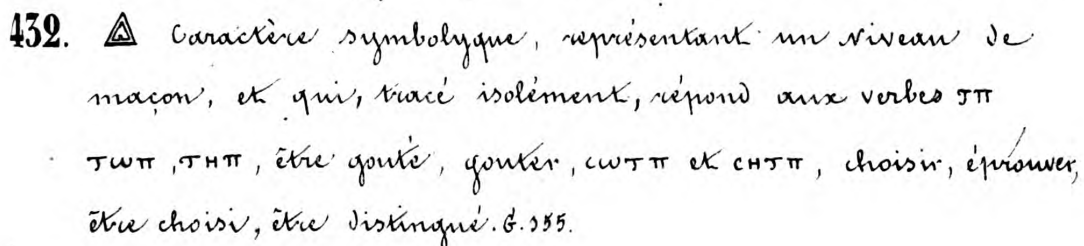 432. Caractère symbolyque, représentant un niveau de
maçon, et qui, tracé isolément, répond aux verbes ⲧⲡ
ⲧⲱⲡ, ⲧⲏⲡ, être gouté, gouter, ⲥⲱⲧⲡ et ⲥⲏⲧⲡ, choisir, éprouver,
être choisi, être distingué. G. 355.